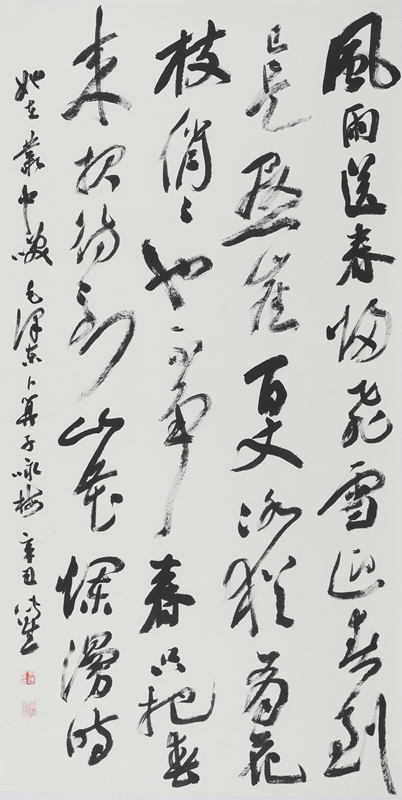 風雨送春歸飛雪迎春到
已是懸崖百丈冰猶有花
枝俏〻也不爭春只把春
來報待到山花爛漫時
她在叢中笑 毛澤東卜算子咏梅 辛丑